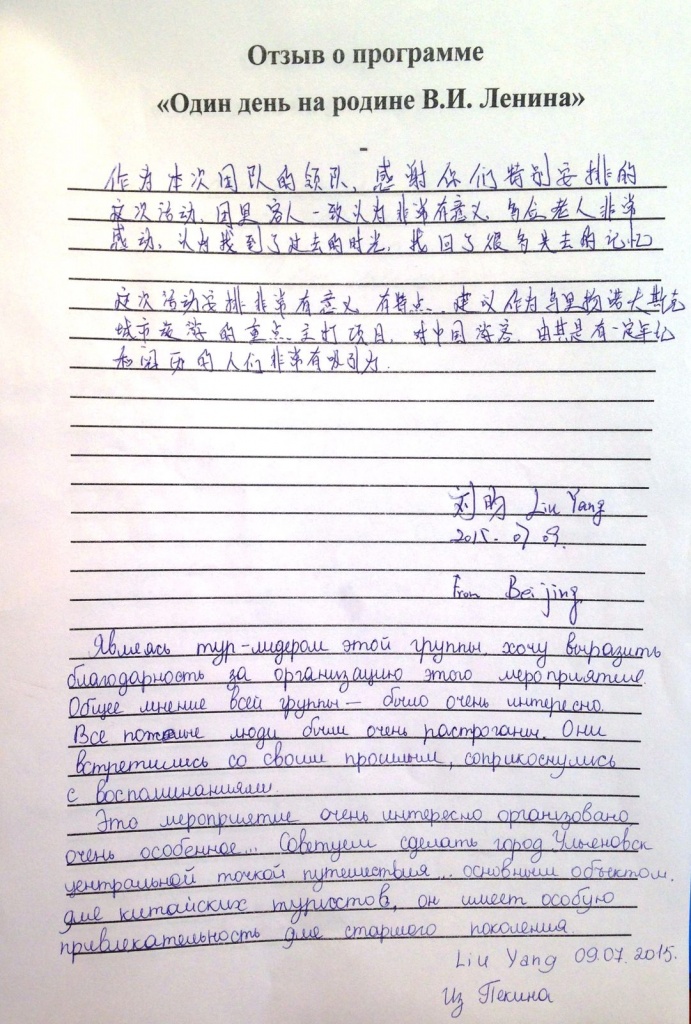 Отзыв о программе
«Один день на родине В.И. Ленина»
-
作为本次团队的领队、感谢你们特别安排的
这次活动、团里客人一致认为非常有意义、多位老人非常
感动、认为找到了过去的时光、找回了很多失去的记忆
这次活动安排非常有意义、有特点、建议作为乌里扬诺夫斯克
城市旅游的重点、主打项目、对中国游客、由其是有一定年纪
和阅历的人们非常有吸引力.
刘昀 Liu Yang
2015. 07 09.
From Beijing
Являясь тур-лидером этой группы, хочу выразить
благодарность за организацию этого мероприятие.
Общее мнение всей группы — было очень интересно.
Все пожилые люди были очень растроганы. Они
встретились со своим прошлым, соприкоснулись
с воспоминаниями.
Это мероприятие очень интересно организовано,
очень особенное... Советуем сделать город Ульяновск
центральной точкой путешествия.. основным объектом.
для китайских туристов, он имеет особую
привлекательность для старшого поколения.
Liu Yang 09.07.2015.
Из Пекина